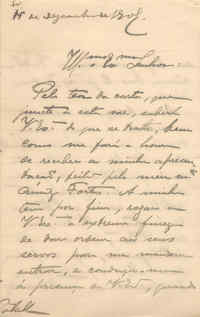 15 de Dezembro de 190
Senhor
Pelo teor da carta, que
junto a esta vae, saberá
V. Ex.ª de que se trata, bem
como me fará a honra
de receber a minha apresen
tação, feita pelo meu
Fortes. A minha
tem por fim, rogar a
V. Ex.ª a extrema fineza
de dar ordem aos seus
servos para me mandarem
entrar, e conduzir-me
á presença de V. Ex.ª, quando